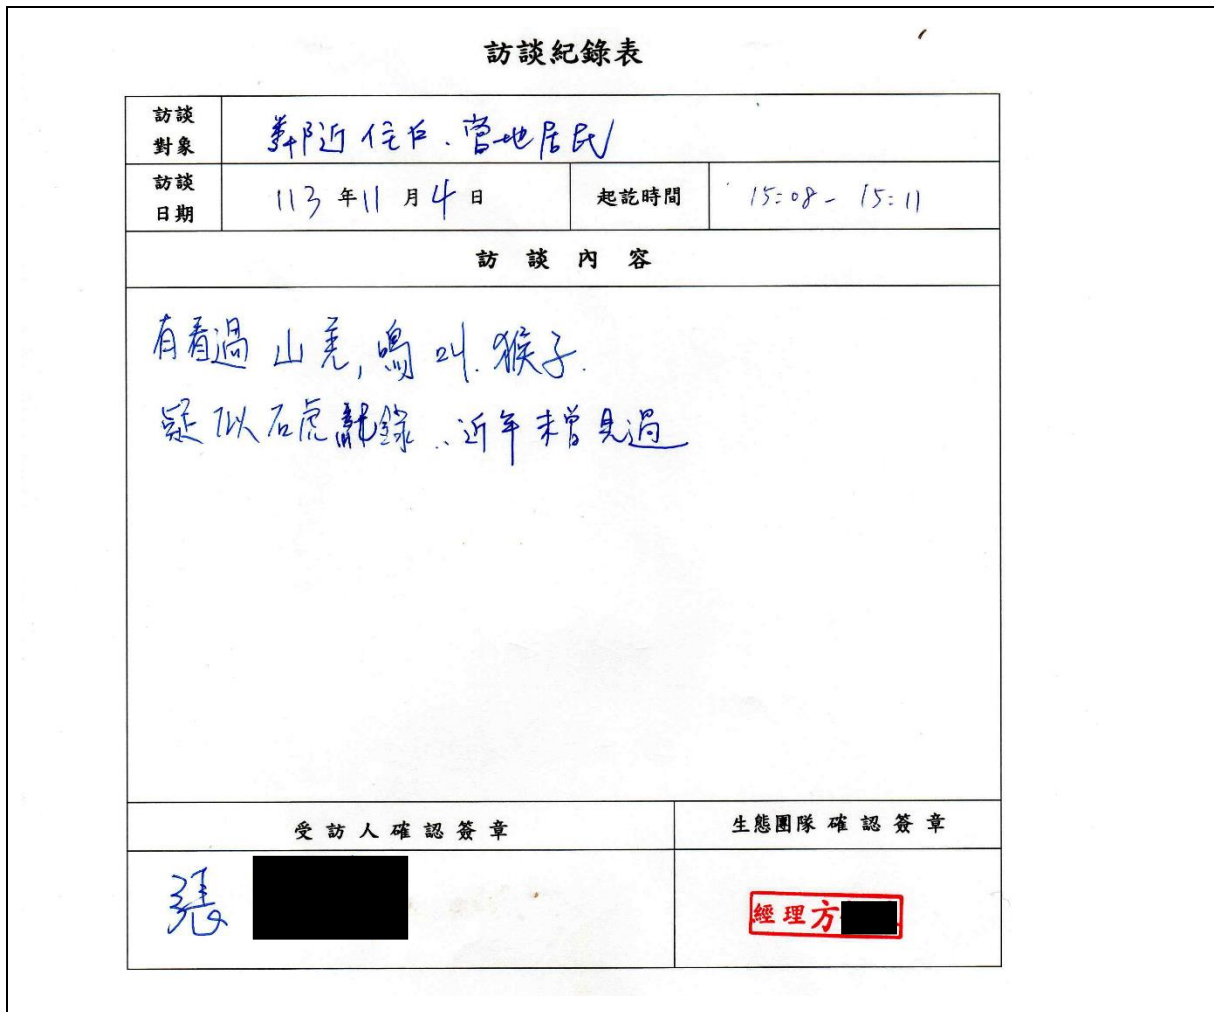 訪談紀錄表
訪談對象
鄰近住戶.當地居民
訪談日期
113年11月4日
起訖時間
15:08 - 15:11
訪談內容
有看過山羌,鳴叫.猴子.
疑似石虎 錄.近年未曾見過
受訪人確認簽章
生態團隊確認簽章
張
經理方